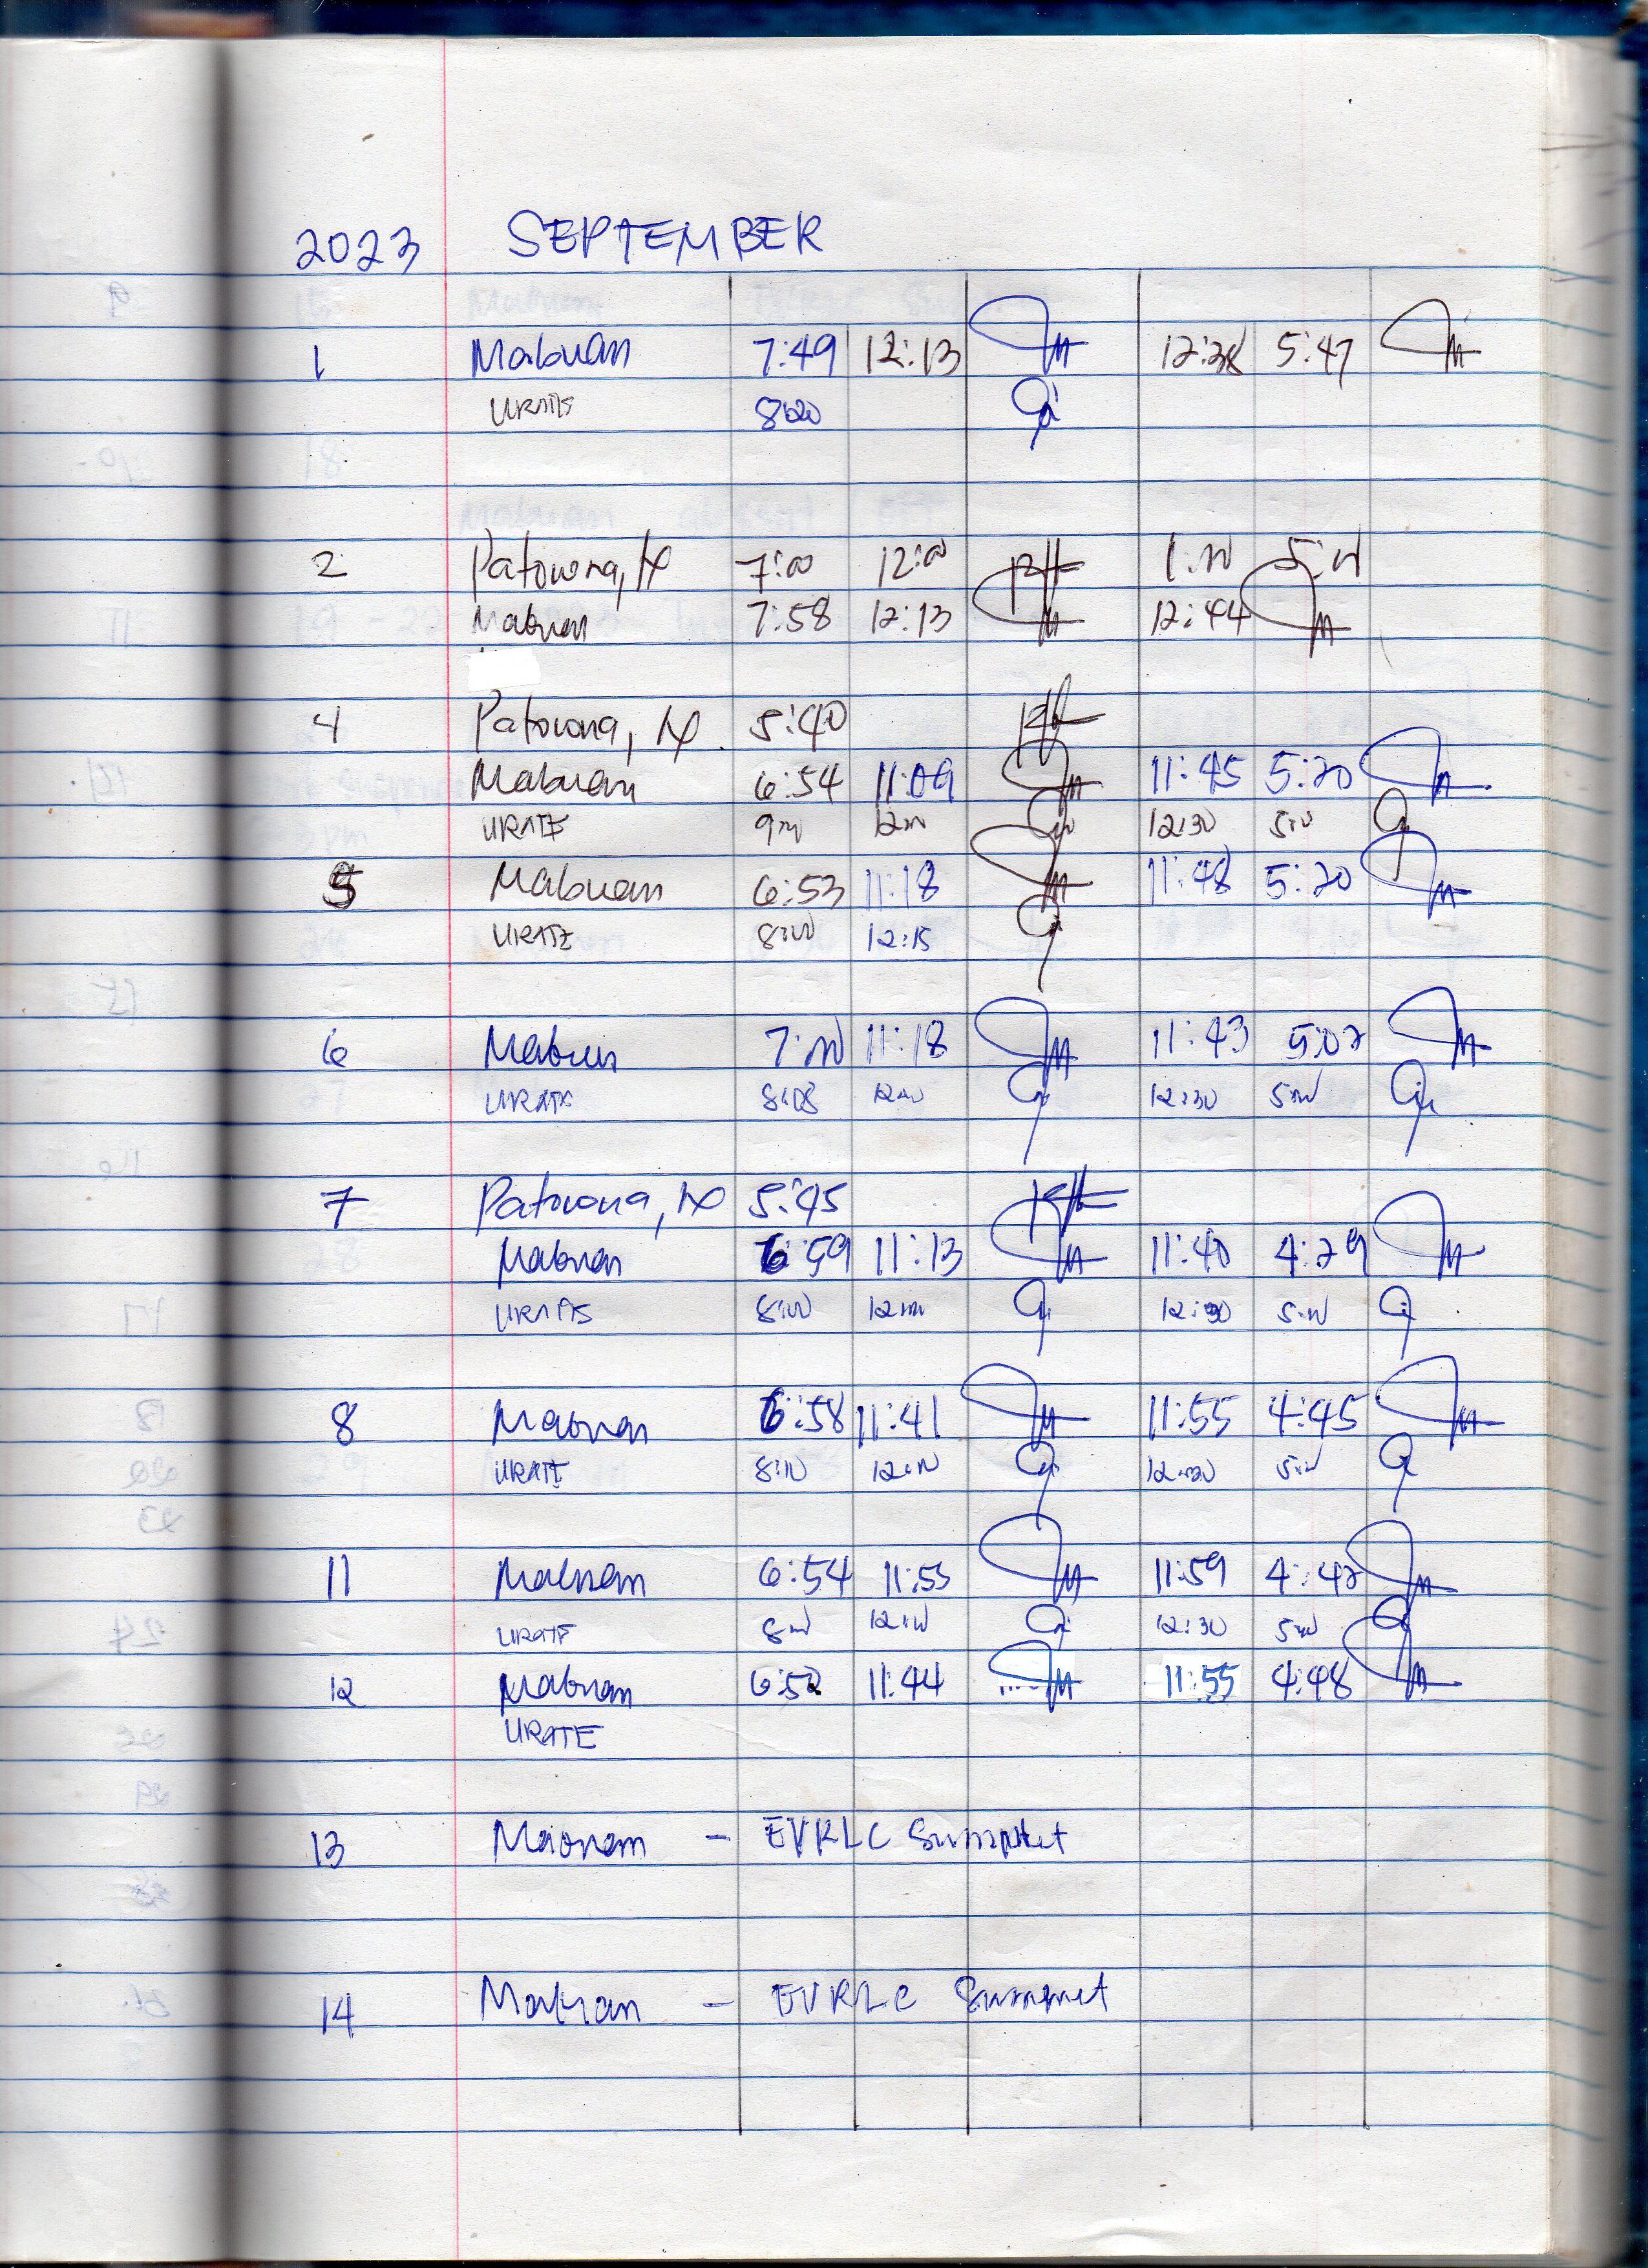 2023 SEPTEMBER
1 Mabuan 7:49 12:13 12:38 5:47
URATE 8:20
2 Patowna, N 7:00 12:00 1:00 5:00
Mabuan 7:58 12:13 12:44
4 Patowna, N 5:40
Mabuan 6:54 11:09 11:45 5:20
URATE 9:00 12:00 12:30 5:00
5 Mabuan 6:53 11:18 11:48 5:20
URATE 8:00 12:15
6 Mabuan 7:00 11:18 11:43 5:02
URATE 8:08 12:00 12:30 5:00
7 Patowna, N 5:45
Mabuan 6:59 11:13 11:40 4:29
URATE 8:00 12:00 12:30 5:00
8 Mabuan 6:58 11:41 11:55 4:45
URATE 8:10 12:00 12:30 5:00
11 Mabuan 6:54 11:55 11:59 4:42
URATE 8:00 12:10 12:30 5:00
12 Mabuan 6:52 11:44 11:55 4:48
URATE
13 Mabuan - EVRLC Summit
14 Mabuan - EVRLC Summit